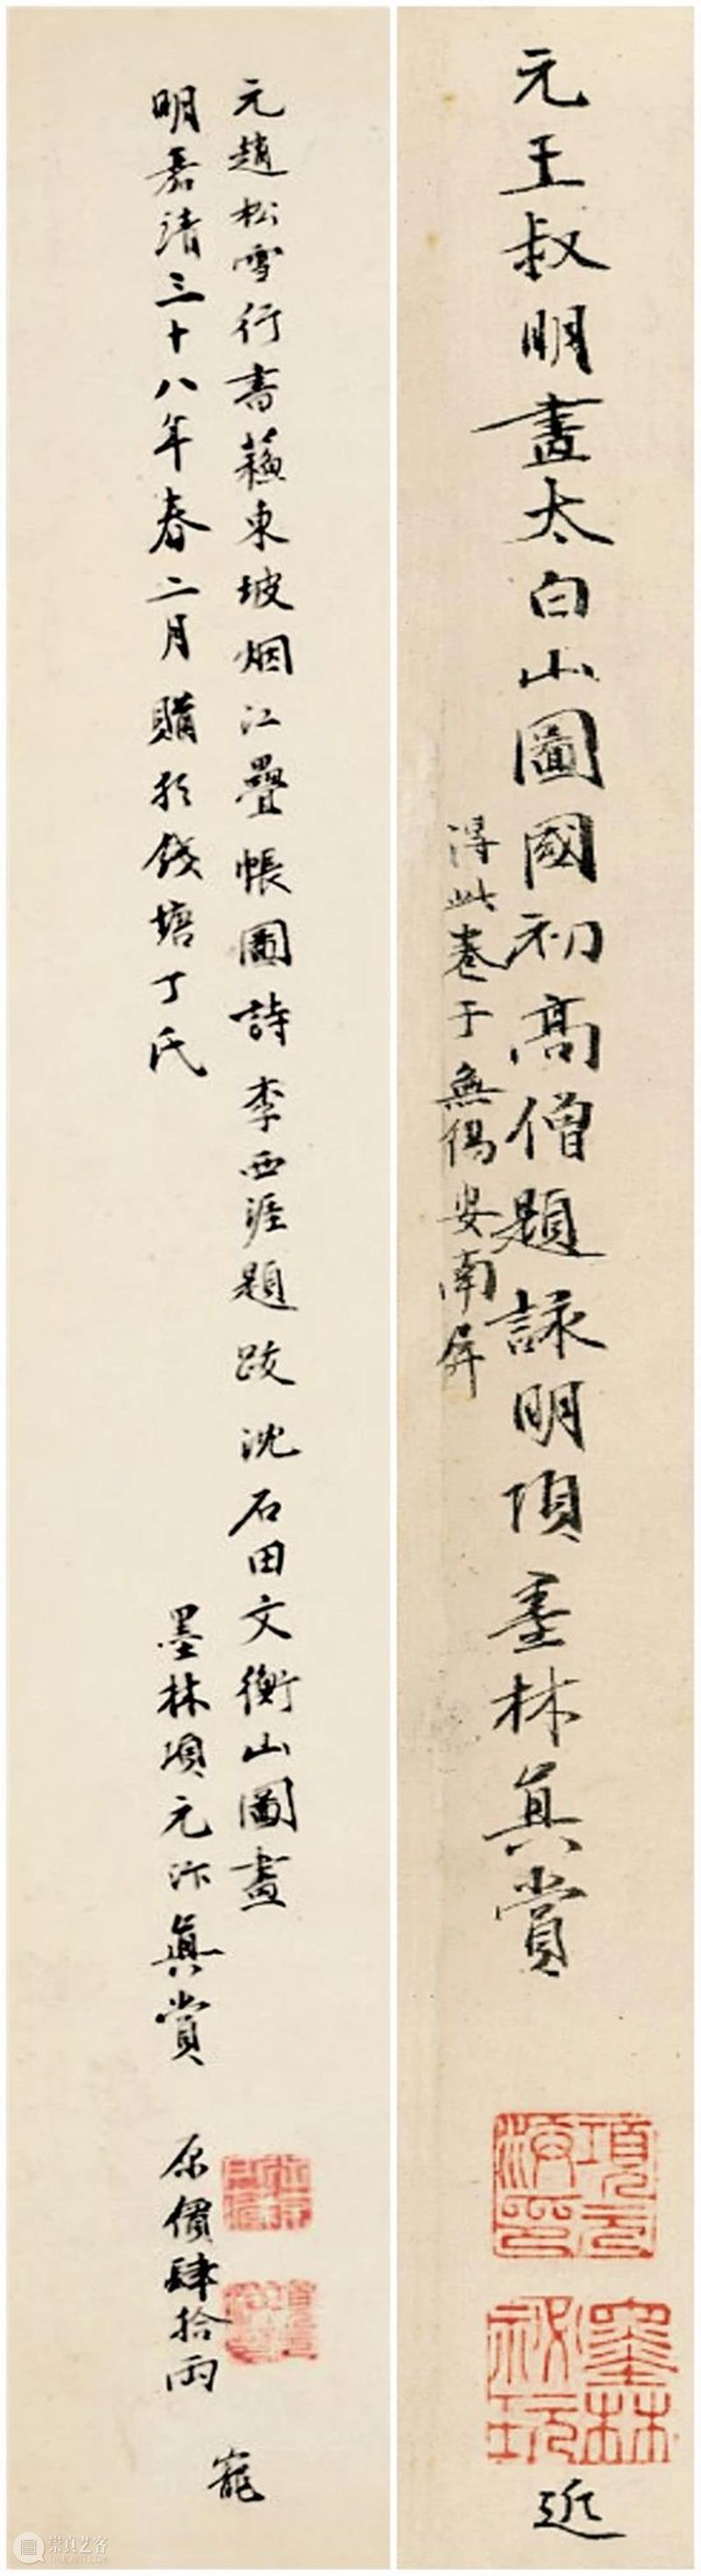 元王叔明畫太白山圖國初高僧題詠明項墨林真賞
得此卷于無錫安南屏
項元汴印
墨林祕玩
近
元趙松雪行書蘓東坡烟江疊帳圖詩李西涯題跋沈石田文衡山圖畫
明嘉靖三十八年春二月購於錢塘丁氏
墨林項元汴真賞 原價肆拾兩
寵
崇真艺客
TRUEARTIST